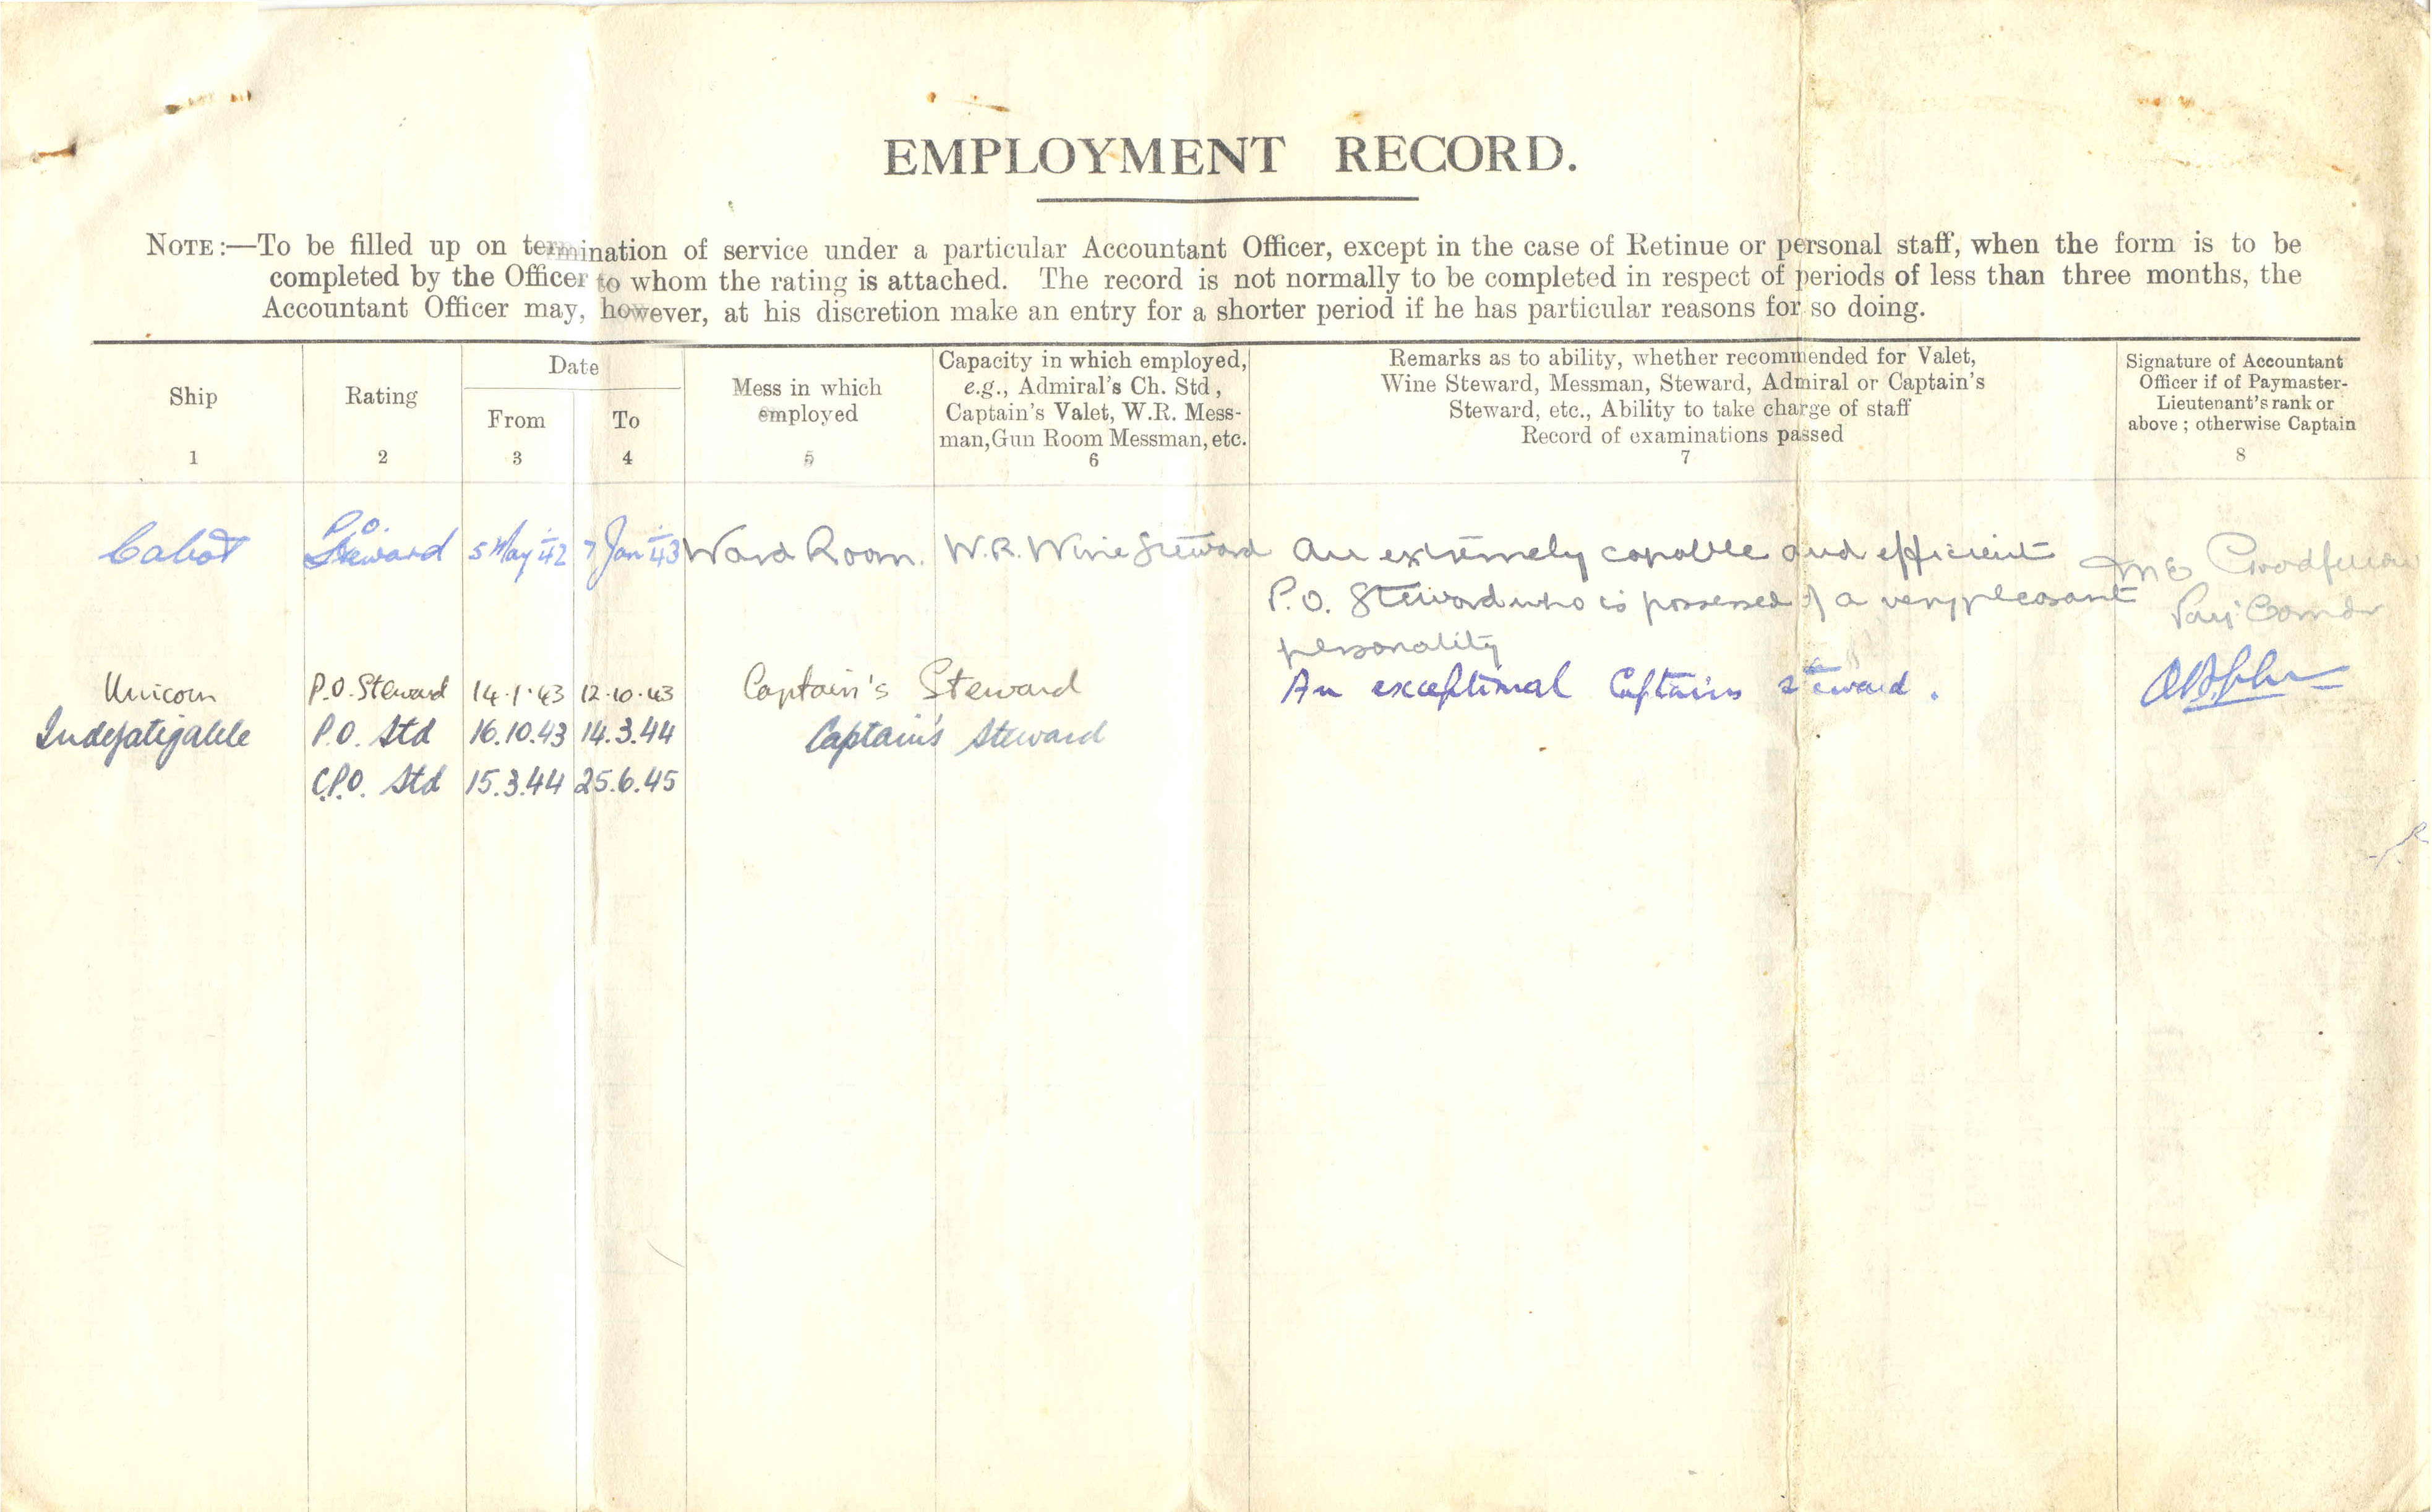 EMPLOYMENT RECORD.
NOTE:—To be filled up on termination of service under a particular Accountant Officer, except in the case of Retinue or personal staff, when the form is to be
completed by the Officer to whom the rating is attached. The record is not normally to be completed in respect of periods of less than three months, the
Accountant Officer may, however, at his discretion make an entry for a shorter period if he has particular reasons for so doing.
Ship
1
Rating
2
Date
From
3
To
4
Mess in which
employed
5
Capacity in which employed,
e.g., Admiral's Ch. Std,
Captain's Valet, W.R. Mess-
man, Gun Room Messman, etc.
6
Remarks as to ability, whether recommended for Valet,
Wine Steward, Messman, Steward, Admiral or Captain's
Steward, etc., Ability to take charge of staff
Record of examinations passed
7
Signature of Accountant
Officer if of Paymaster-
Lieutenant's rank or
above; otherwise Captain
8
Cabot P.O. Steward 5 May 42 7 Jan 43 Ward Room. W.R. Wine Steward An extremely capable and efficient Goodfellow
P.O. Steward who is possessed of a very pleasant Pay: Comdr
personality
Unicorn P.O. Steward 14.1.43 12.10.43 Captain's Steward An exceptional Captains steward.
Indefatigable P.O. Std 16.10.43 14.3.44 Captain's Steward
C.P.O. Std 15.3.44 25.6.45